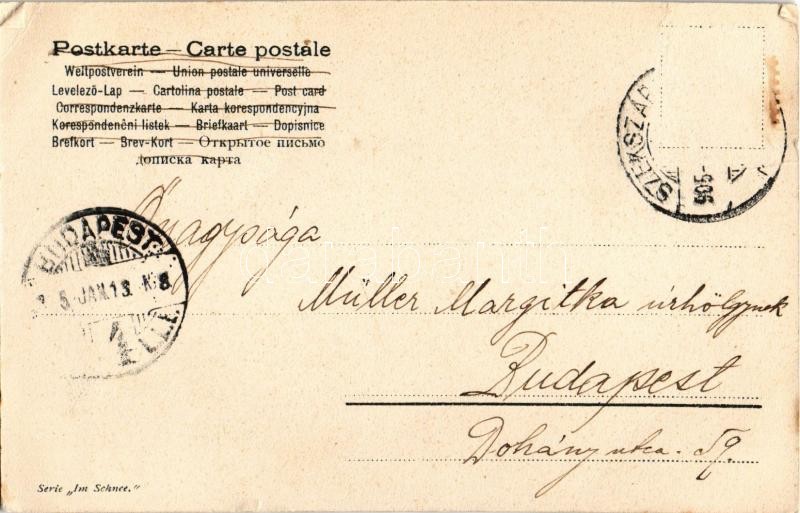 Postkarte — Carte postale
Weltpostverein — Union postale universelle
Levelező-Lap — Cartolina postale — Post card
Correspondenzkarte — Karta korespondencyjna
Korespondenční listek — Briefkaart — Dopisnice
Brefkort — Brev-Kort — Открытое письмо
дописка карта
SZEKSZÁR
905
Önagysága
BUDAPEST
5 JAN. 13
Müller Margitka úrhölgynek
Budapest
Dohány utca. 59.
Serie „Im Schnee."